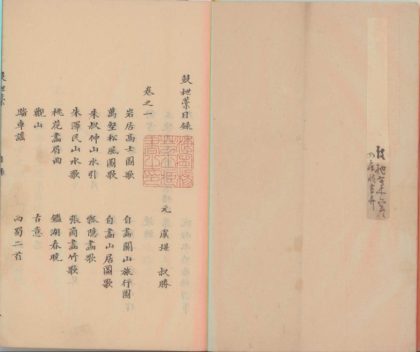 鼓枻藁目錄
元 虞堪 叔勝
卷之一
岩居高士圖歌 自畫關山旅行圖
萬壑松風圖歌 自畫山居圖歌
朱叔仲山水引 瓢隱畫歌
朱澤民山水歌 張商畫竹歌
桃花畫眉曲 鑑湖春曉
觀山 古意
踏車謠 西蜀二首